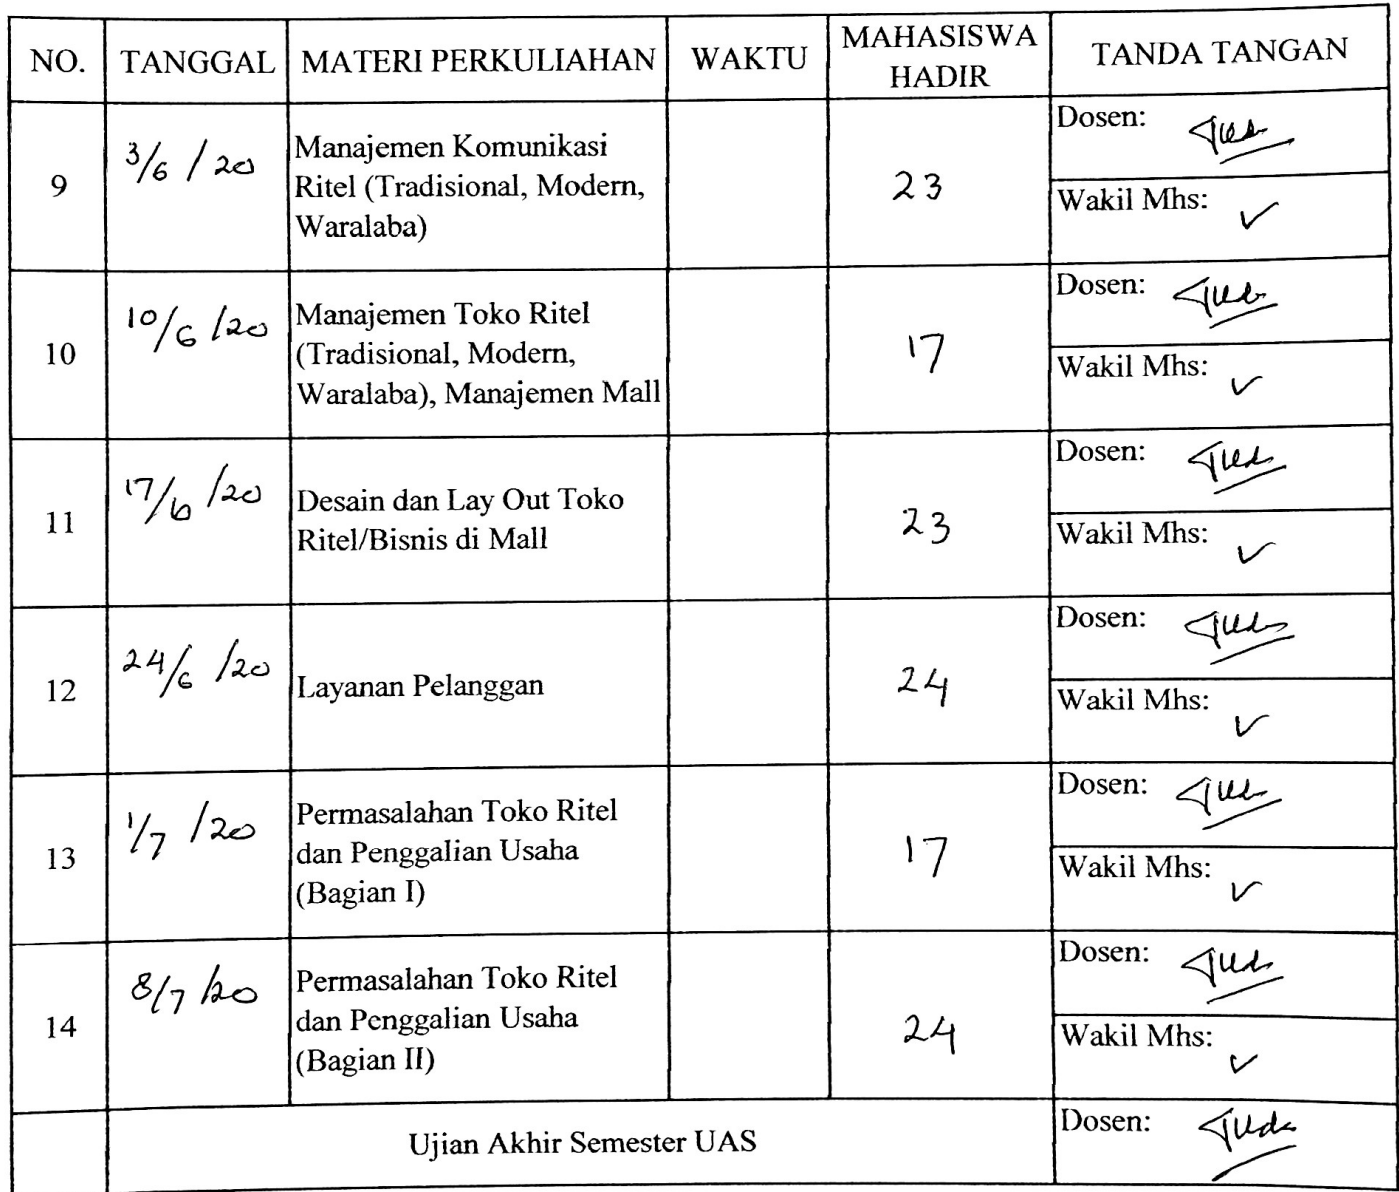 NO. TANGGAL MATERI PERKULIAHAN WAKTU MAHASISWA HADIR TANDA TANGAN
9
3/6 / 20
Manajemen Komunikasi
Ritel (Tradisional, Modern,
Waralaba)
23
Dosen:
Wakil Mhs: ✓
10
10/6 /20
Manajemen Toko Ritel
(Tradisional, Modern,
Waralaba), Manajemen Mall
17
Dosen:
Wakil Mhs: ✓
11
17/6 /20
Desain dan Lay Out Toko
Ritel/Bisnis di Mall
23
Dosen:
Wakil Mhs: ✓
12
24/6 /20
Layanan Pelanggan
24
Dosen:
Wakil Mhs: ✓
13
1/7 /20
Permasalahan Toko Ritel
dan Penggalian Usaha
(Bagian I)
17
Dosen:
Wakil Mhs: ✓
14
8/7 /20
Permasalahan Toko Ritel
dan Penggalian Usaha
(Bagian II)
24
Dosen:
Wakil Mhs: ✓
Ujian Akhir Semester UAS
Dosen: